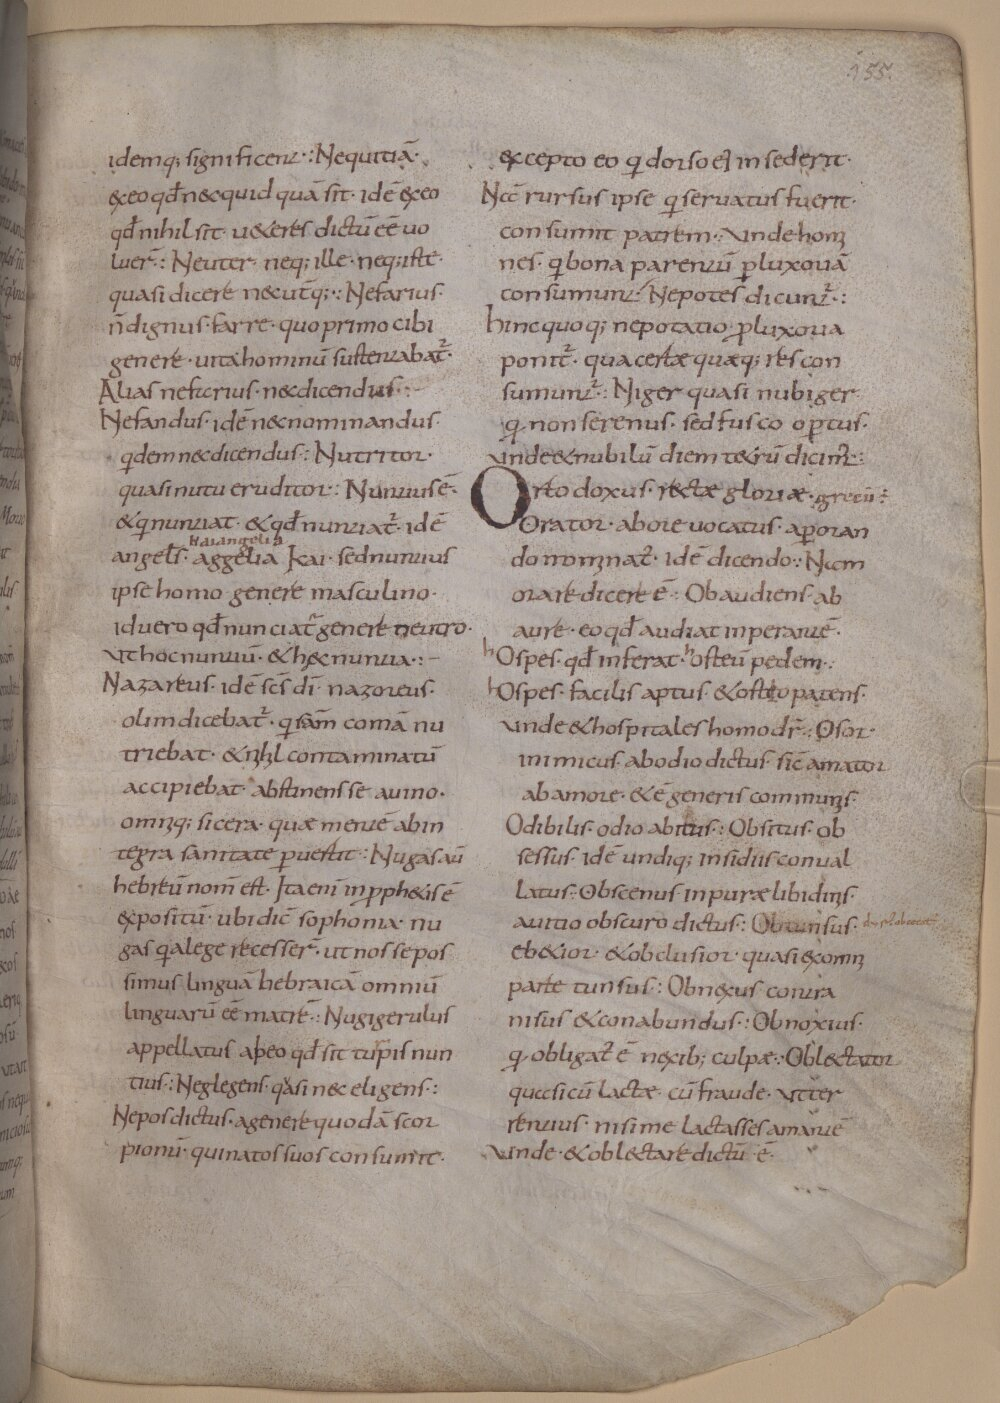 155.
idemq; significent·:Nequitiā·
& eo qđ nec quid quā sit· idē & eo
qđ nihil sit· ueteres dictū eē uo
luer̄·: Neuter neq; ille· neq; iste·
quasi dicere nec utq;·: Nefarius·
n̄ dignus· farre· quo primo cibi
genere· uita hominū sustentabat̄·
Alias neficrius· nec dicendus·:-
Nefandus· idē nec nominandus·
qdem nec dicendus·: Nutritor·
quasi nutu eruditor·: Nuntius ē·
& q nuntiat· & qđ nuntiat̄· idē
haiangelia
angel̄s· aggelia kai· sed nuntius
ipse homo genere masculino·
id uero qđ nunciat̄ genere neutro·
ut hoc nuntiū· & hec nuntia·:-
Nazareus· idē sc̄s dī· nazoreus·
olim dicebat̄· q sām comā nu
triebat· & nihl contaminatū
accipiebat· abstinens se a uino·
omniq; sicera· quæ mentē ab in
tegra sanitate puestit·: Nugas aū
hebreū nom̄ est· Ita enī in pphetis ē
expositū· ubi dic̄ sophonia· nu
gas q a lege recesser̄· ut nosse pos
simus linguā hebraicā omniū
linguarū eē matrē·: Nugigerulus
appellatus ab eo qđ sit turpis nun
tius·: Neglegens· qasi nec eligens·:
Nepos dictus· a genere quodā scor
pionū· qui natos suos consumit·
excepto eo q dorso eꝯ insederit·
Nā rursus ipse q seruatus fuerit·
consumit patrem·: Unde homi
nes· q bona parentū p luxoriā
consumunt· Nepotes dicunt̄·:
hinc quoq; nepotatio p luxoria
ponit̄· qua certæ quæq; res con
sumunt̄·: Niger quasi nubiger
q non serenus· sed fusco optus·
unde & nubilū diem tetrū dicim̄·:
Ortodoxus· rectæ gloriæ·
Orator· ab ore uocatus· a poran
do nominat̄· idē dicendo·: Nam
orare dicere ē·: Obaudiens· ab
aure· eo qđ audiat inperantē·
hOspes· qđ inferat· hosteū pedem·:
hOspes· facilis aptus· & ostio patens·
unde & hospitales homo dr̄·: Osor·
inimicus· ab odio dictus· sic̄ amator
ab amore· & ē generis communis·
Odibilis· odio abitus·: Obsitus· ob
sessus· idē undiq; insidiis conual
latus·: Obscenus· inpuræ libidinis·
a uitio obscuro dictus·: Obtunsus·
ebetior· & obclusior· quasi ex omni
parte tunsus·: Obnexus contra
nisus & conabundus·: Obnoxius·
q obligat̄ ē nexib; culpæ·: Oblectator
quasi cū lactæ· cū fraude· ut ter
rentius· nisi me lactasses amantē
Unde· & oblectare dictū ē·